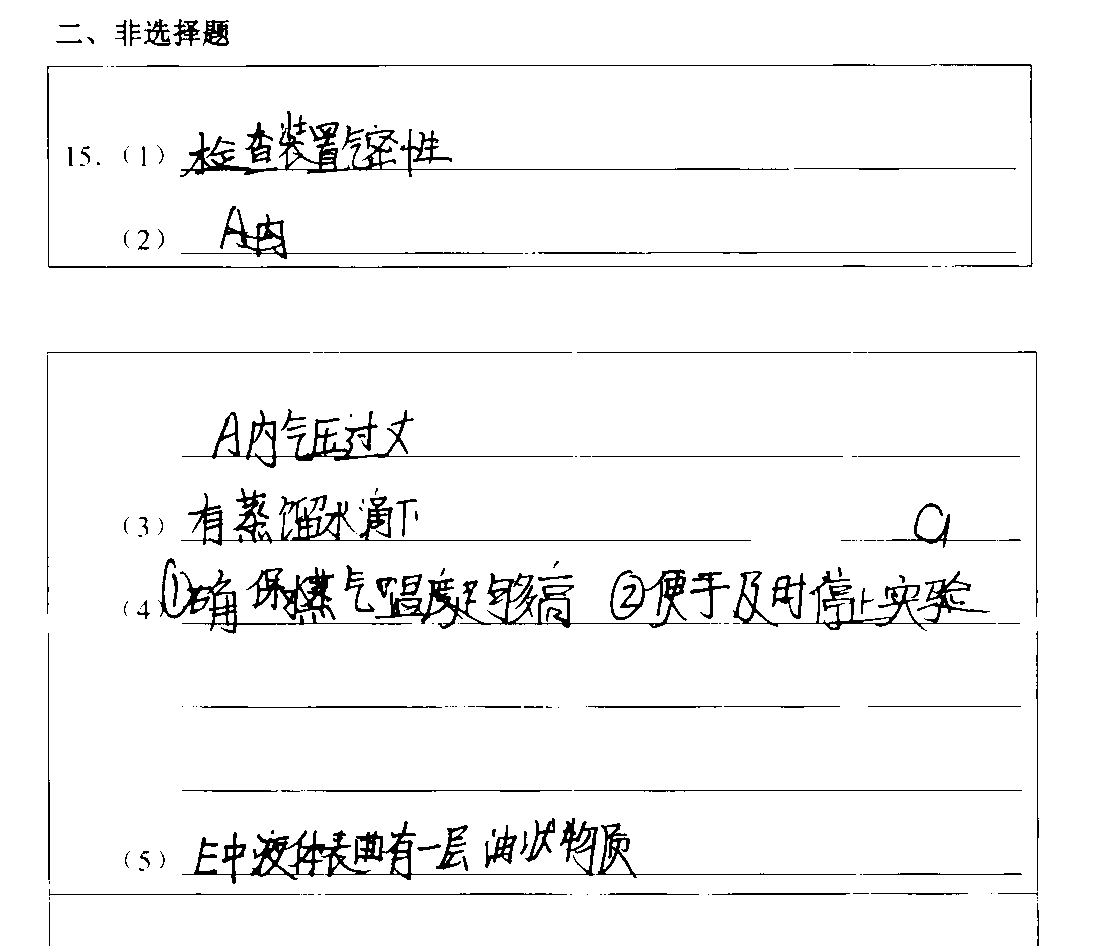 二、非选择题
15.（1）检查装置气密性
（2）A内
A内气压过丈
（3）有蒸馏水滴下 a
（4）①确保蒸气温度足够高 ②便于及时停止实验
（5）E中液体表曲有一层油状物质